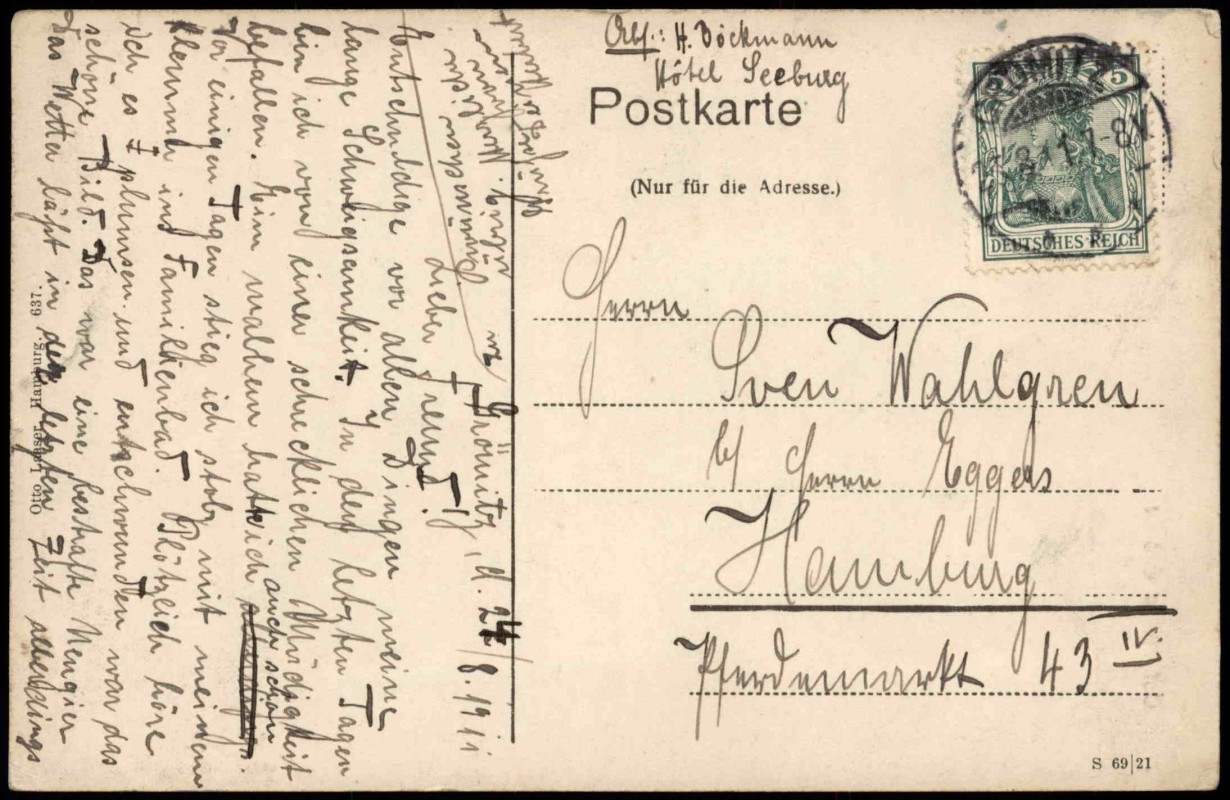 Abs.: H. Böckmann
Hôtel Seeburg
Postkarte
(Nur für die Adresse.)
GRÖMITZ
8.11. 7-8V.
5
DEUTSCHES REICH
Herrn
Sven Wahlgren
b/ Herrn Eggers
Hamburg
Pferdemarkt 43 IV.
S 69/21
Otto Leisser, Hamburg. 637.
Grömitz, d. 24/8. 1911
Lieber Freund!
Entschuldige vor allen Dingen meine
lange Schweigsamkeit. In den letzten Tagen
bin ich von einer schrecklichen Müdigkeit
befallen. Einmalhen hatte ich auch schon
Vor einigen Tagen stieg ich stolz mit meinem
Klemmer ins Familienbad. Plötzlich höre
ich es plumsen und entschwunden war das
schöne Bild. Das war eine boshafte Neugier
Das Wetter läßt in der letzten Zeit allerdings